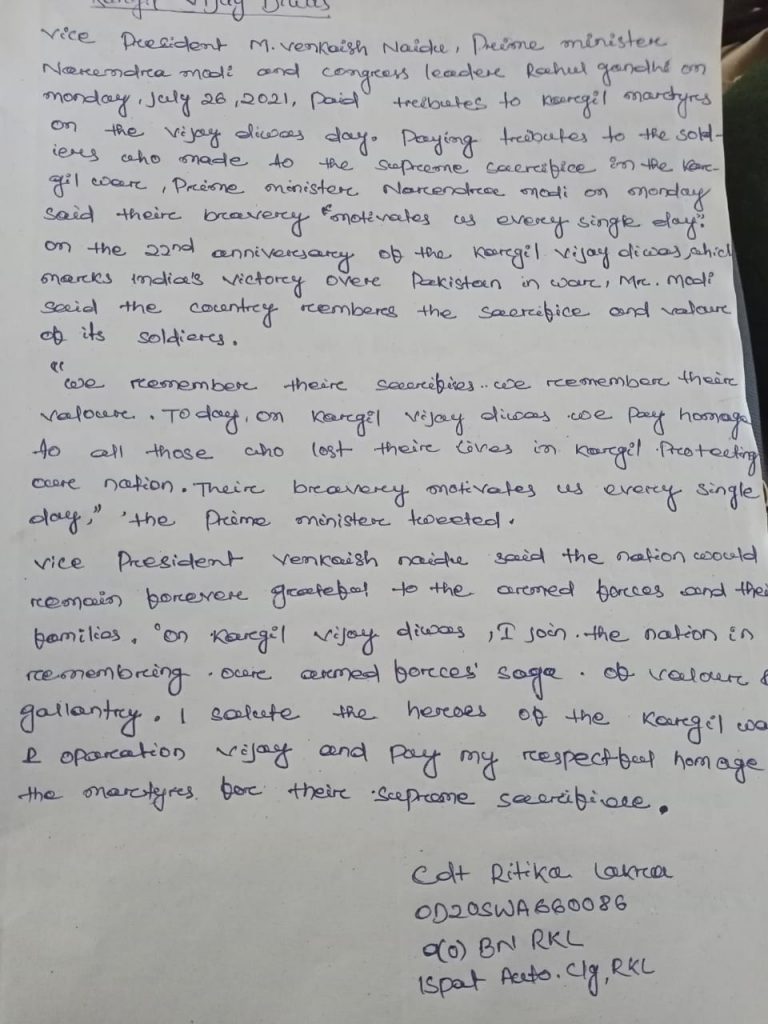 Kargil Vijay Diwas
Vice President M. Venkaiah Naidu, Prime minister
Narendra modi and congress leader Rahul gandhi on
monday, July 26, 2021, paid tributes to kargil martyrs
on the vijay diwas day. Paying tributes to the sold-
iers who made to the supreme sacrifice in the kar-
gil war, Prime minister Narendra modi on monday
said their bravery "motivates us every single day".
on the 22nd anniversary of the kargil vijay diwas, which
marks India's victory over Pakistan in war, Mr. modi
said the country rembers the sacrifice and valour
of its soldiers.
"we remember their sacrifies. we remember their
valour. Today, on kargil vijay diwas we pay homage
to all those who lost their lives in kargil protecting
our nation. Their bravery motivates us every single
day," the Prime minister tweeted.
vice President venkaiah naidu said the nation would
remain forever grateful to the armed forces and their
families. "on kargil vijay diwas, I join the nation in
remembring our armed forces' saga of valour &
gallantry. I salute the heroes of the kargil wa
& oparation vijay and pay my respectful homage
the martyrs for their supreme sacrifice.
Cdt Ritika Lakra
OD20SWA660086
a(0) BN RKL
Ispat Auto. Clg, RKL